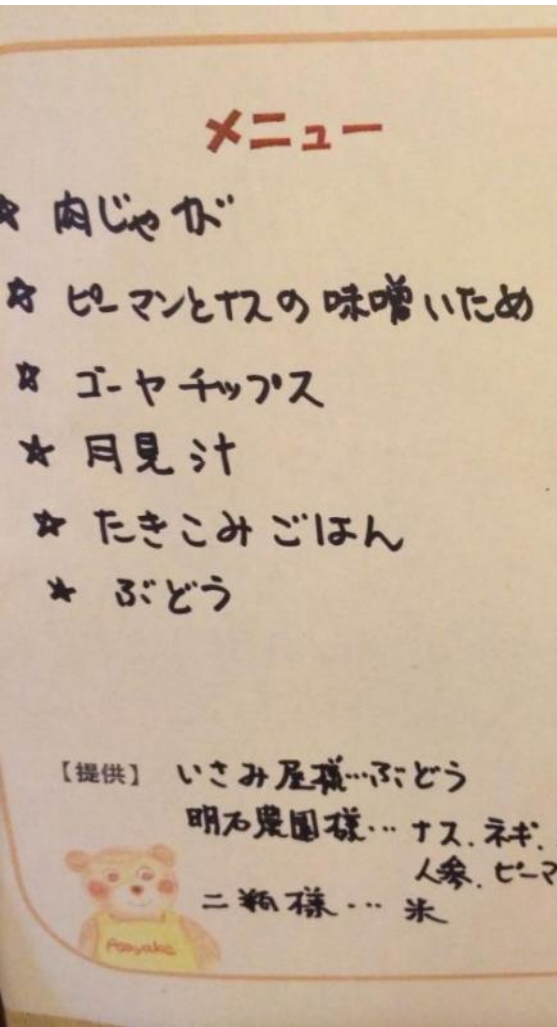 メニュー
☆ 肉じゃが
☆ ピーマンとナスの味噌いため
☆ ゴーヤチップス
☆ 月見汁
☆ たきこみごはん
☆ ぶどう
【提供】 いさみ屋様…ぶどう
明石農園様… ナス、ネギ、
人参、ピーマ
二瓶様… 米